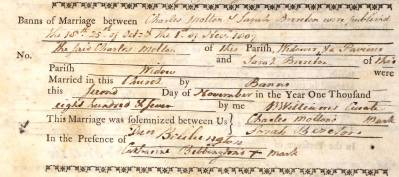 Banns of Marriage between Charles Molton & Sarah Brereton were published
the 18th. 25th. of Oct. & the 1st. of Nov. 1807
No. The said Charles Molton of this Parish, Widower, &
and Sarah Brereton of this
Parish Widow were
Married in this Church by Banns
this Second Day of November in the Year One Thousand
eight hundred & seven by me Williams Curate
This Marriage was solemnized between Us Charles Molton's Mark
Sarah Brereton
In the Presence of
Catharine Bebbington's + Mark